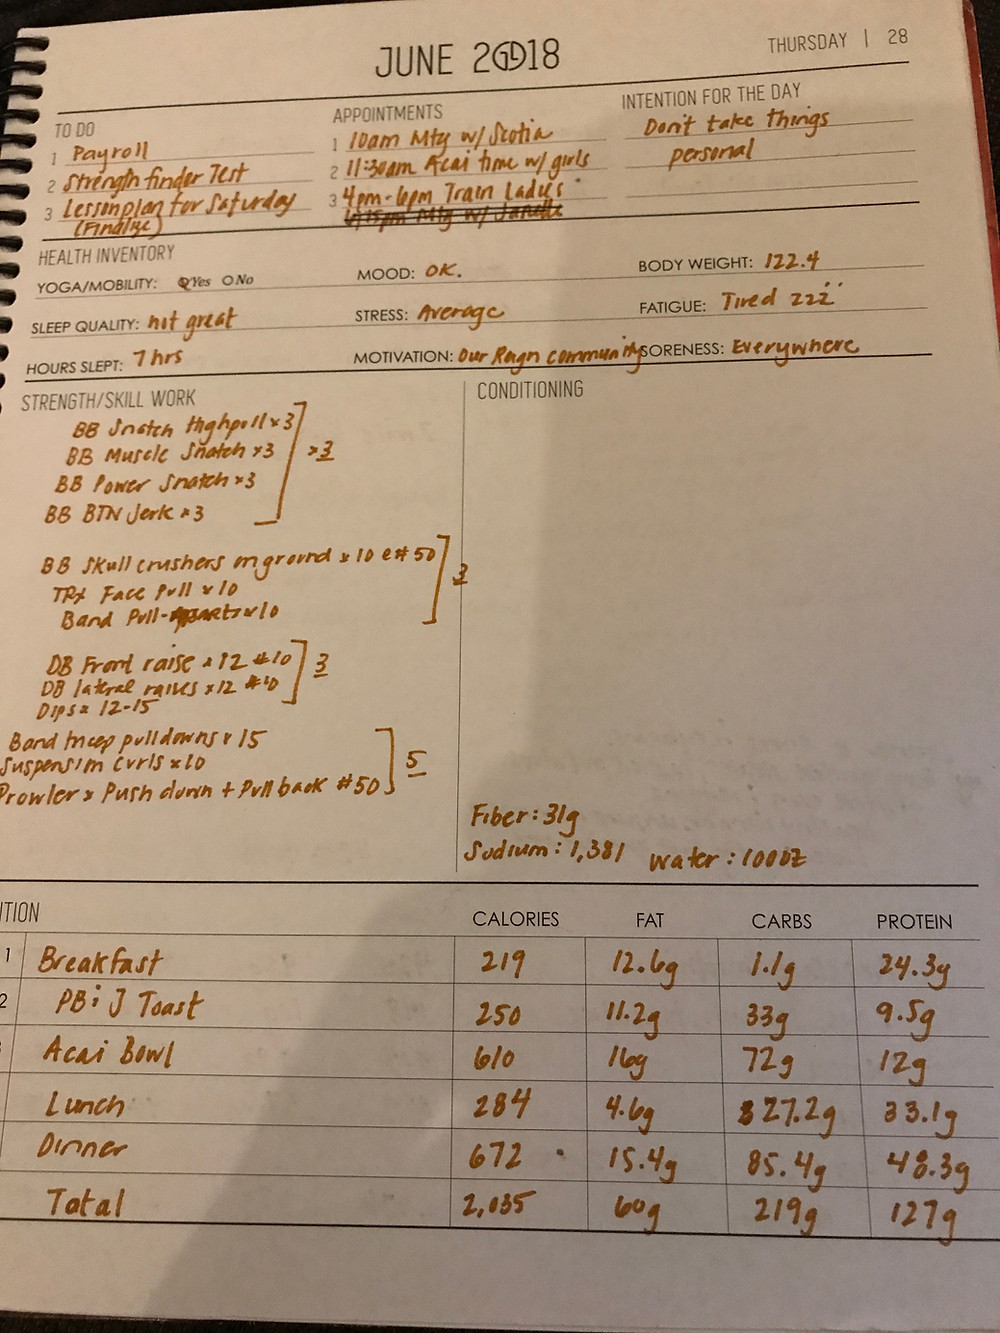 JUNE 2018
THURSDAY | 28
TO DO
1 Payroll
2 Strength finder Test
3 Lessonplan for Saturday
(Finalize)
APPOINTMENTS
1 10am Mtg w/ Scotia
2 11:30am Acai time w/ girls
3 4pm-6pm Train Ladies
6:15pm Mtg w/ Janelle
INTENTION FOR THE DAY
Don't take things
personal
HEALTH INVENTORY
YOGA/MOBILITY: Yes No
MOOD: OK.
BODY WEIGHT: 122.4
SLEEP QUALITY: not great
STRESS: Average
FATIGUE: Tired zzz
HOURS SLEPT: 7 hrs
MOTIVATION: Our Reign community
SORENESS: Everywhere
STRENGTH/SKILL WORK
BB Snatch Highpull x3
BB Muscle Snatch x3
BB Power Snatch x3
BB BTN Jerk x3
x3
BB Skull crushers on ground x 10 e# 50
TRX Face Pull x 10
Band Pull-aparts x 10
3
DB Front raise x 12 #10
DB lateral raises x 12 #10
Dips x 12-15
3
Band tricep pulldowns x 15
Suspension curls x 10
Prowler x Push down + Pull back #50
5
CONDITIONING
Fiber: 31g
Sodium: 1,381 water: 100oz
ITION
CALORIES FAT CARBS PROTEIN
1 Breakfast 219 12.6g 1.1g 24.3g
2 PB & J Toast 250 11.2g 33g 9.5g
Acai Bowl 610 16g 72g 12g
Lunch 284 4.6g 27.2g 33.1g
Dinner 672 15.4g 85.4g 48.3g
Total 2,035 60g 219g 127g